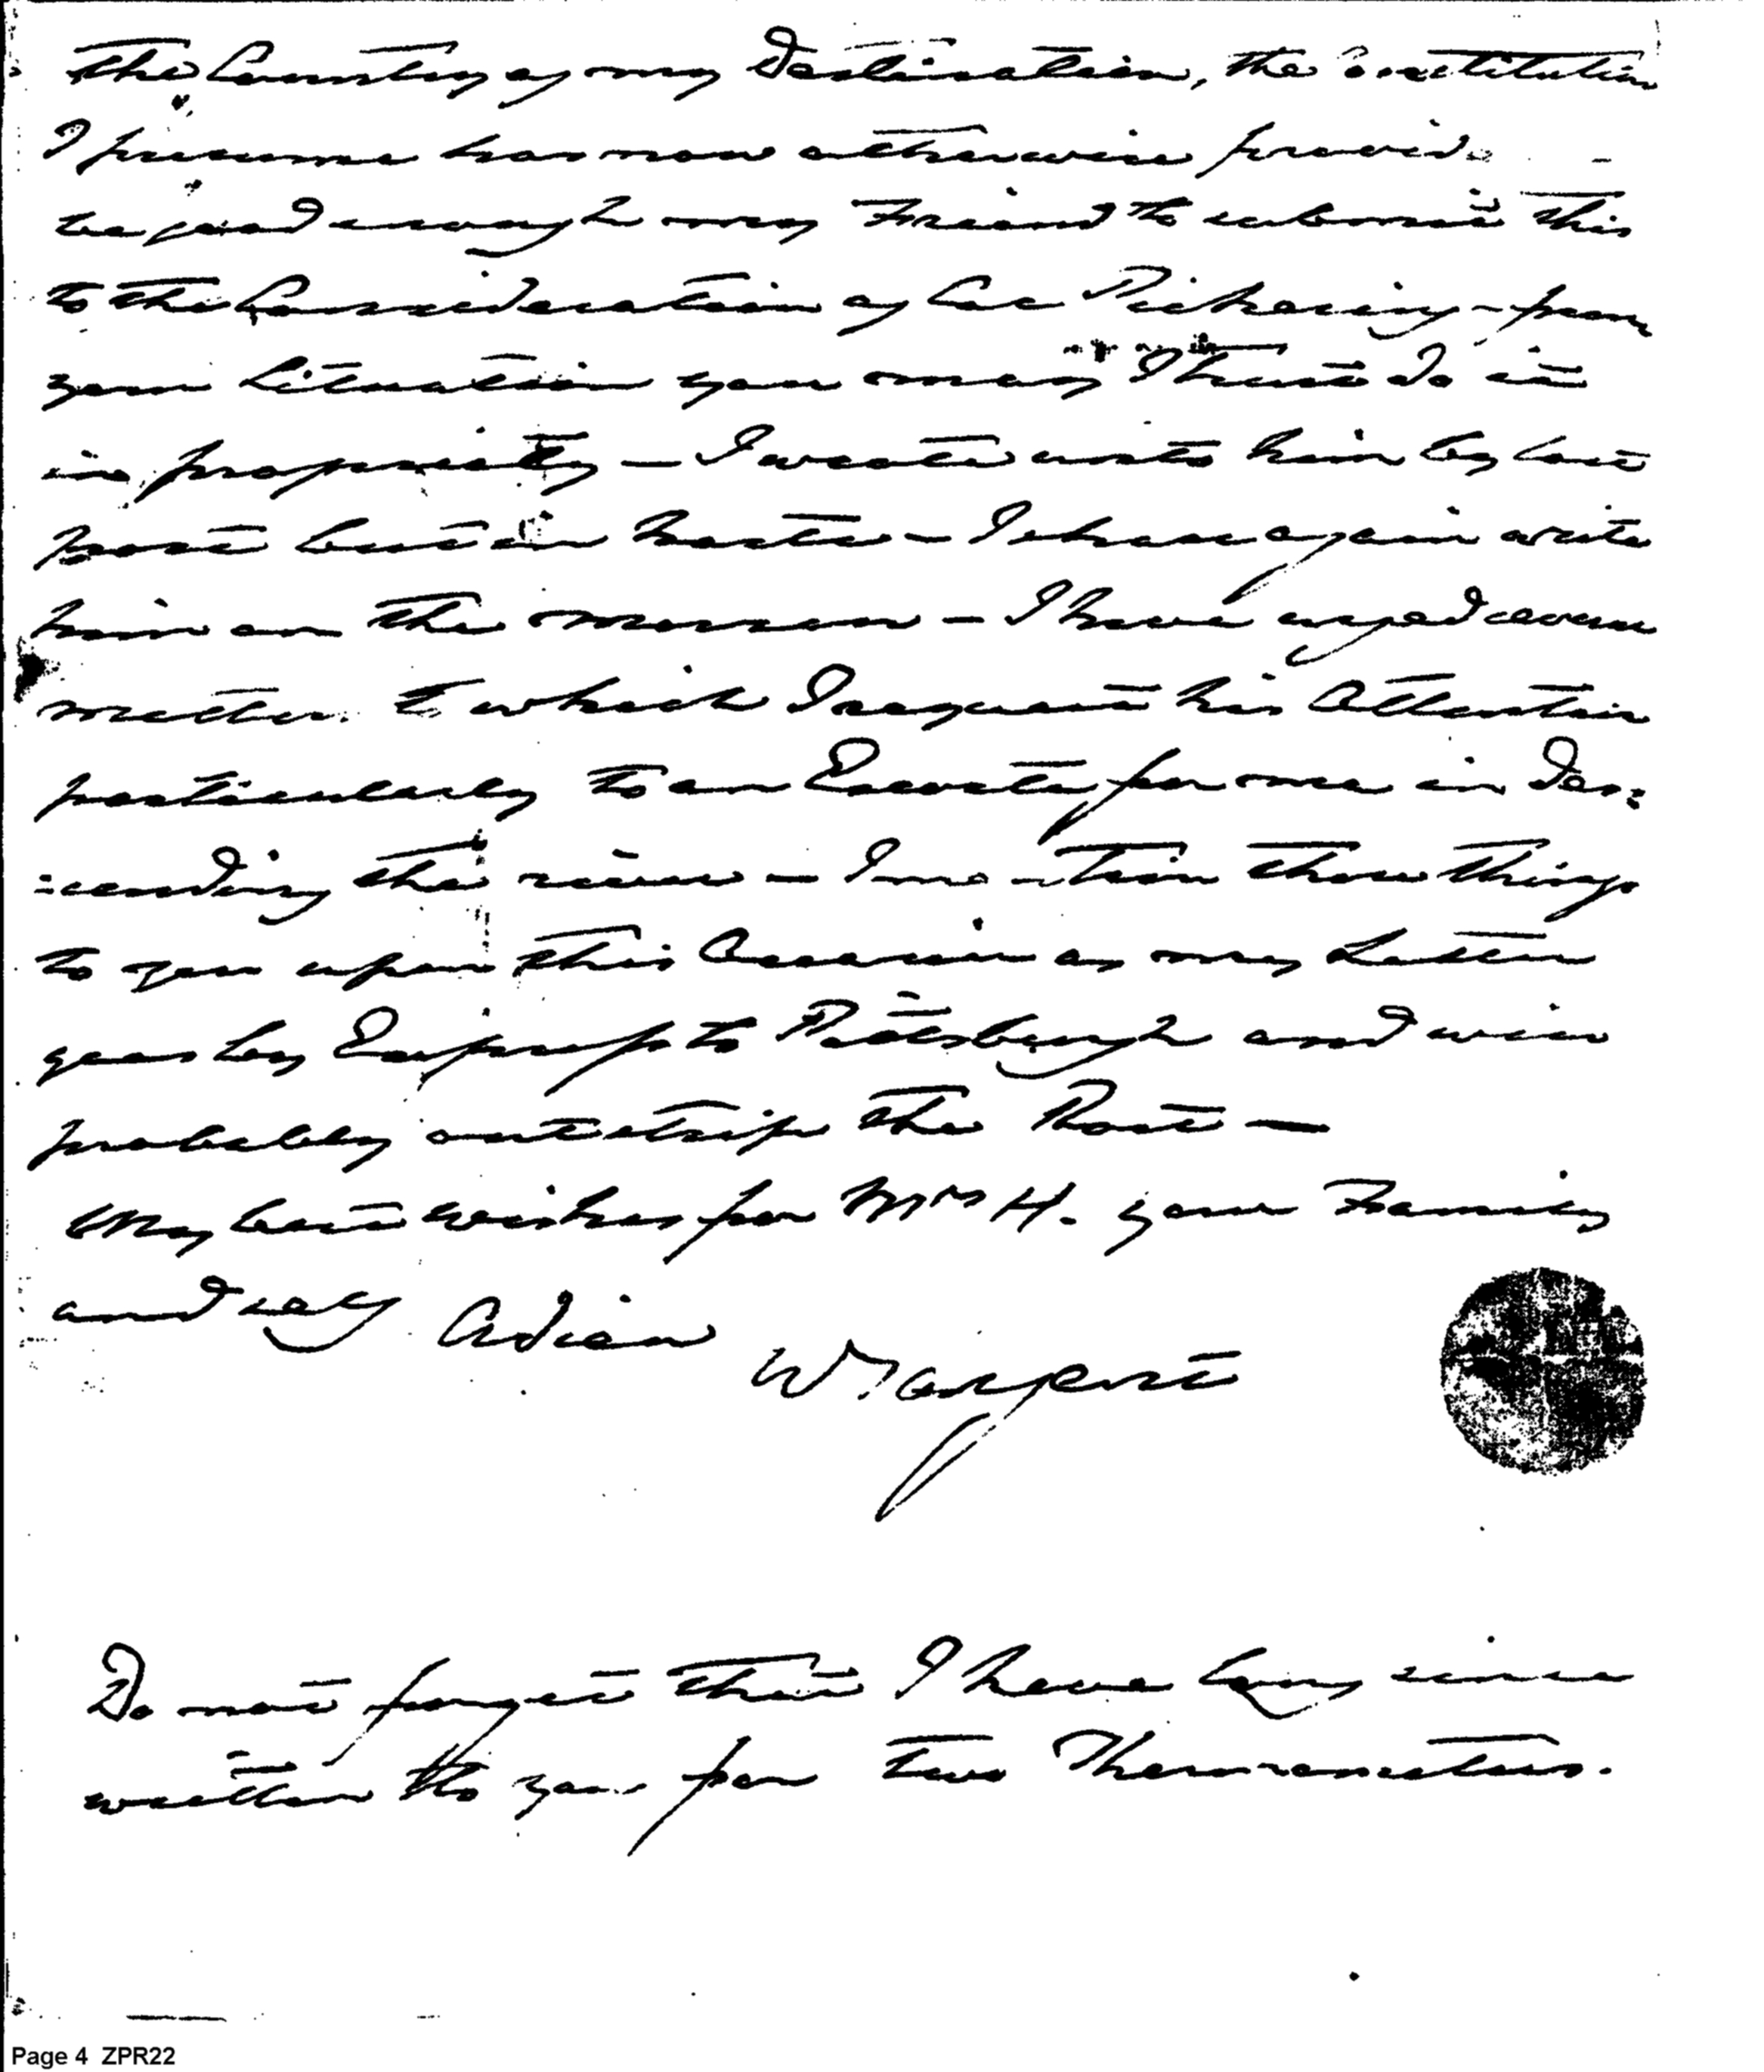 the Country of my Destination, the Constitution
I presume has now otherwise provid
be good enough my Friend to submit this
to the Consideration of Col Pickering – from
your Situation you may I trust do it
in propriety – I wrote unto him by last
post but in haste – I shall again write
him on the morrow – I have urged several
matters to which I request his Attention
particularly to an Escorte for me in Des:
:cending the river – I mention those things
to you upon this Occasion as my Letter
goes by Express to Pittsburgh and will
probably outstrip the Post –
My best wishes for Mrs H. your Family
and all Adieu
W Sargent
Do not forget that I have long since
written to you for two Thermometers.
Page 4 ZPR22